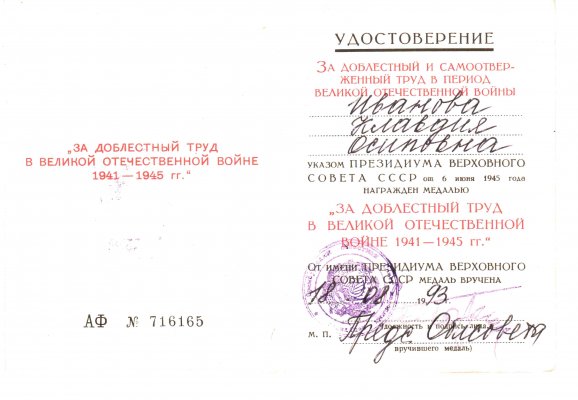 „ЗА ДОБЛЕСТНЫЙ ТРУД
В ВЕЛИКОЙ ОТЕЧЕСТВЕННОЙ ВОЙНЕ
1941—1945 гг."
АФ № 716165
УДОСТОВЕРЕНИЕ
ЗА ДОБЛЕСТНЫЙ И САМООТВЕР-
ЖЕННЫЙ ТРУД В ПЕРИОД
ВЕЛИКОЙ ОТЕЧЕСТВЕННОЙ ВОЙНЫ
Иванова
Клавдия
Осиповна
УКАЗОМ ПРЕЗИДИУМА ВЕРХОВНОГО
СОВЕТА СССР от 6 июня 1945 года
НАГРАЖДЕН МЕДАЛЬЮ
„ЗА ДОБЛЕСТНЫЙ ТРУД
В ВЕЛИКОЙ ОТЕЧЕСТВЕННОЙ
ВОЙНЕ 1941—1945 гг."
От имени ПРЕЗИДИУМА ВЕРХОВНОГО
СОВЕТА СССР МЕДАЛЬ ВРУЧЕНА
18 08 1993
(должность и подпись лица,
М. П. Пред.
вручившего медаль)